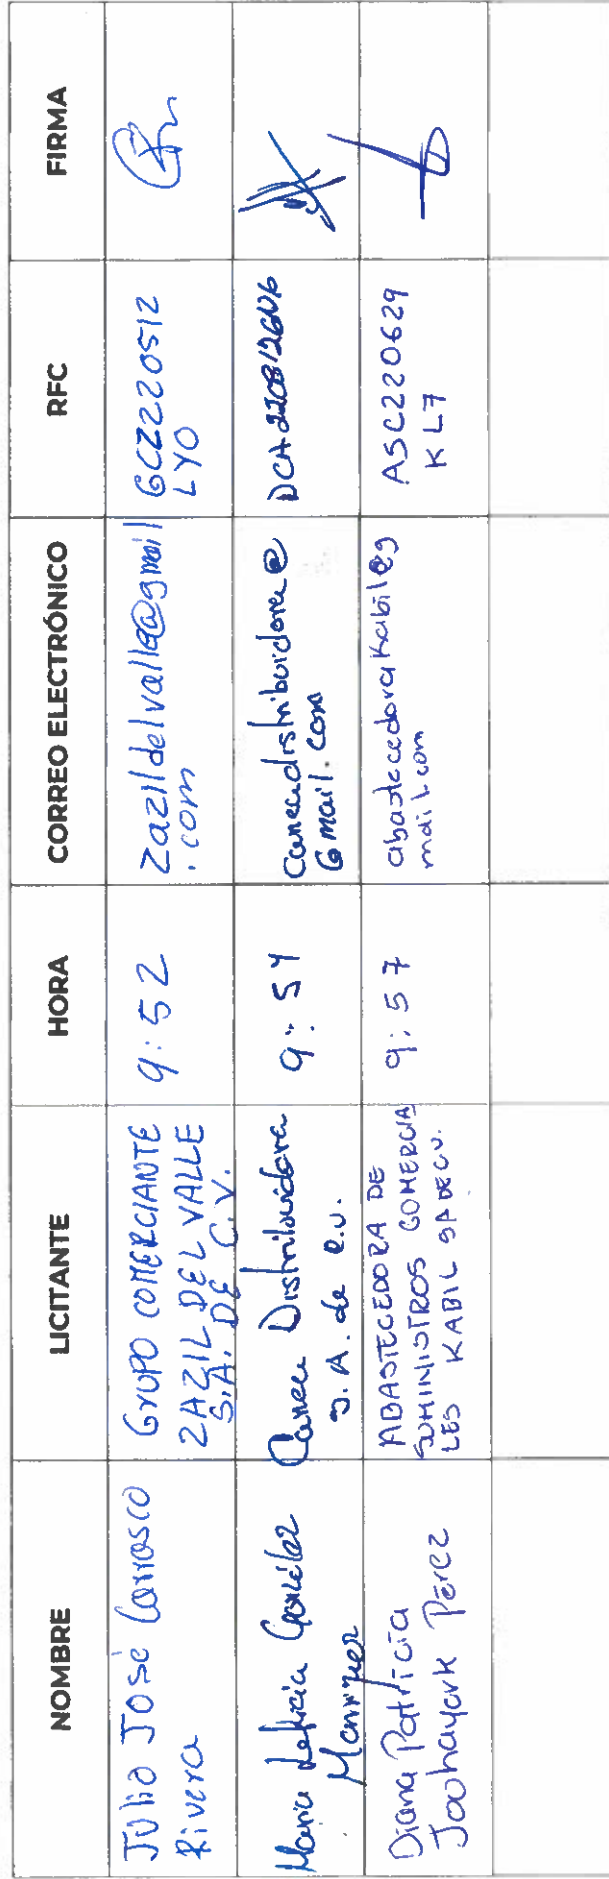 NOMBRE LICITANTE HORA CORREO ELECTRÓNICO RFC FIRMA
Julio José Carrasco
Rivera
Grupo COMERCIANTE
ZAZIL DEL VALLE
S.A. DE C.V.
9:52
zazildelvalle@gmail
.com
GCZ220512
LY0
Maria Leticia González
Manriquez
Caneca Distribuidora
S.A. de C.V.
9:54
Canecadistribuidora@
Gmail.com
DCA220812
Diana Patricia
Pérez
ABASTECEDORA DE
SUMINISTROS COMERCIA
LES KABIL SA DE C.V.
9:57
abastecedorakabil@g
mail.com
ASC220629
KL7